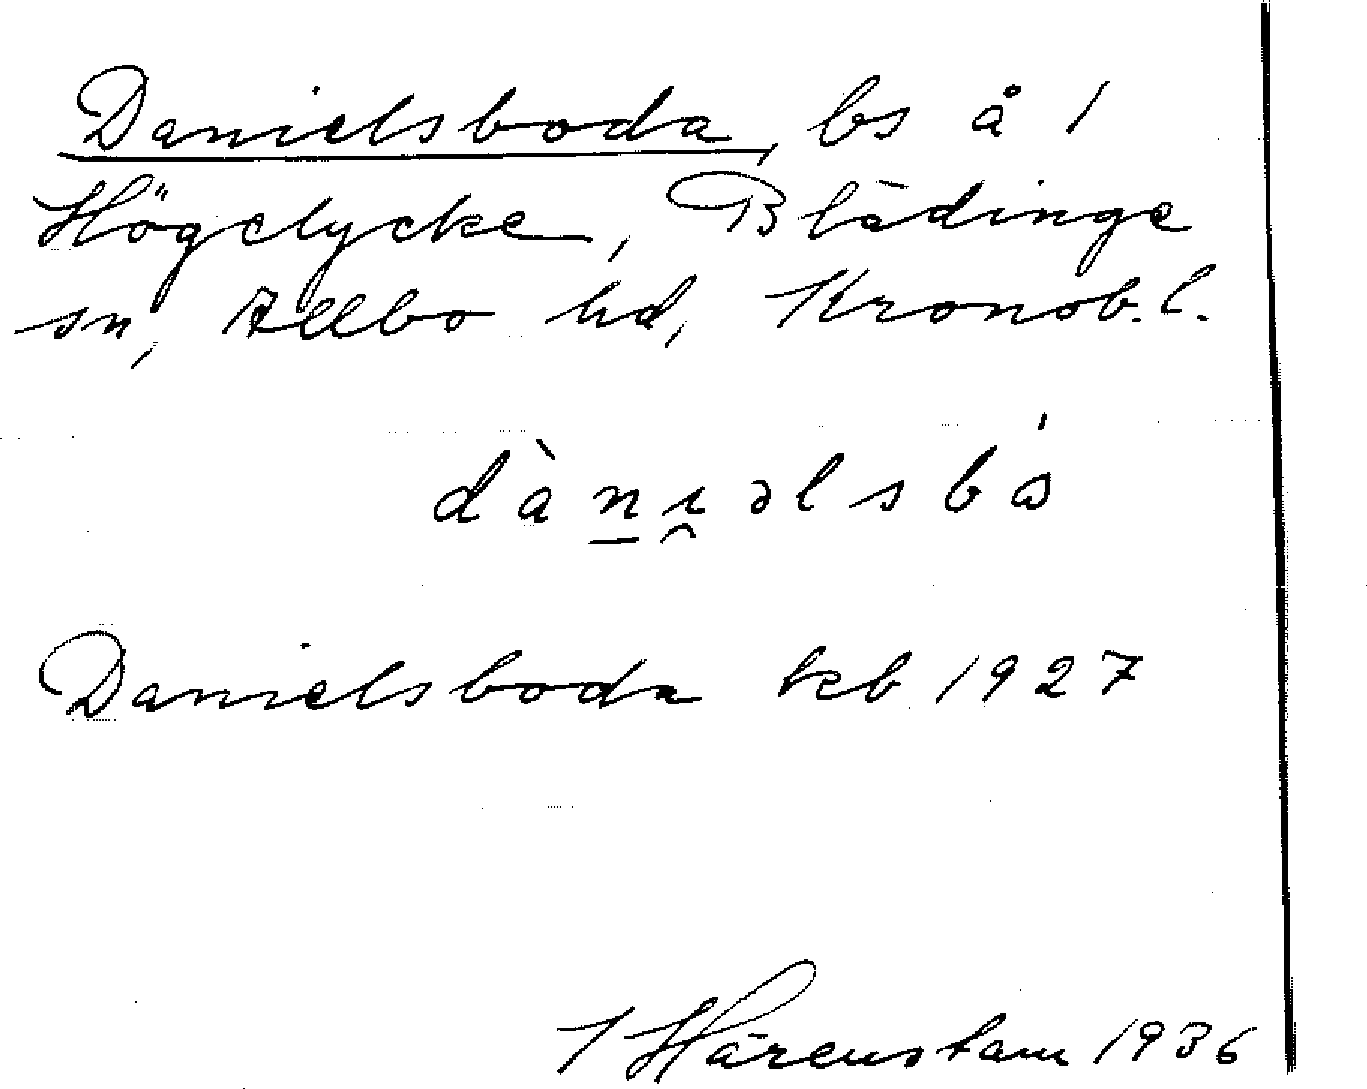 Danielsboda, bs å 1
Högelycke, Blädinge
sn, Allbo hd, Kronob. l.
dàn̠ɪ̯əlsbɷ̍
Danielsboda keb 1927
I Härenstam 1936